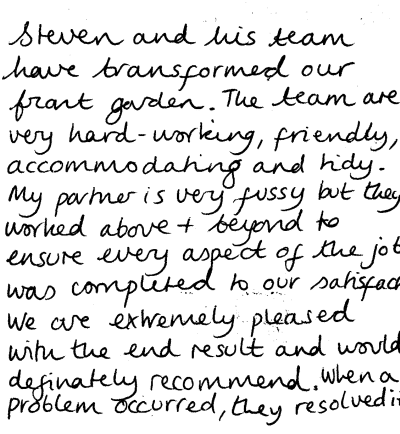 Steven and his team
have transformed our
front garden. The team are
very hard-working, friendly,
accommodating and tidy.
My partner is very fussy but they
worked above + beyond to
ensure every aspect of the job
was completed to our satisfac
We are extremely pleased
with the end result and would
definately recommend. When a
problem occurred, they resolved i